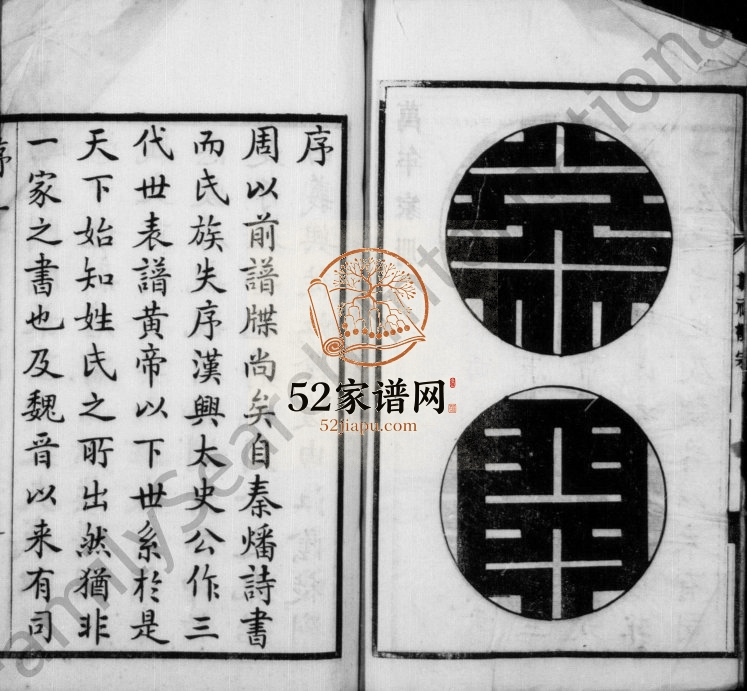 序
周以前譜牒尚矣自秦燔詩書
而氏族失序漢興太史公作三
代世表譜黄帝以下世系於是
天下始知姓氏之所出然猶非
一家之書也及魏晋以来有司
52家谱网
52jiapu.com
FamilySearch International